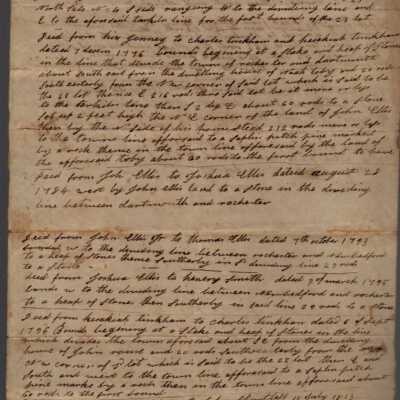 North side N 4 Seids rangeing W to the dividing line and
E to the aforesaid tarkiln line for the first bounds of the 23 lot
Deed from hix Jenney to charles tinkham and hezekiah tinkham
dated 7 1776 bounds begining at a stake and heap of Stones
in the line that devide the towns of rochester and dartmouth
about South east from the dwelling house of toby 20 rods
Southerly from the N E corner of said lot which is said to be
the 25 lot E 216 rods then in said lot be it more or less
to the tarkiln line then S 2 deg E about 60 rods to a Stone
set up 2 feet high the N E corner of the land of John Ellis
then by the N side of his homesteed 212 rods more or less
to the towns line afforesaid to a Saplin pitch pine marked
by a rock thence in the town line afforesaid by the land of
the afforesaid toby about 60 rods to the first bound to have
Deed from Job Ellis to Joshua Ellis dated august 28
1784 west by John Ellis Land to a Stone in the dividing
line between dartmouth and rochester
Deed from John Ellis Jr to thomas Ellis dated 7th october 1793
bounded W to the dividing line between rochester and Newbedford
to a heap of Stones thence Southerly in Sd dividing line 27 rods
to a Stone
deed from Joshua Ellis to henery Smith dated 9 of march 1795
bounds W to the dividing line between newbedford and rochester
to a heap of Stones then Southerly in said line 20 rods to a Stone
Deed from hezekiah tinkham to charles tinkham dated 6 of Sept
1796 Bounds begening at a Stake and heap of Stones in the line
which divides the towns aforesaid about S E from the dwelling
house of John and 20 rods Southerly from the
N W corner of Sd lot which is said to be the 25 lot then E and
South and west to the town line afforesaid to a Saplin pitch
pine marks by a rock then in the town line afforesaid about
60 rods to the first bound
July 1813